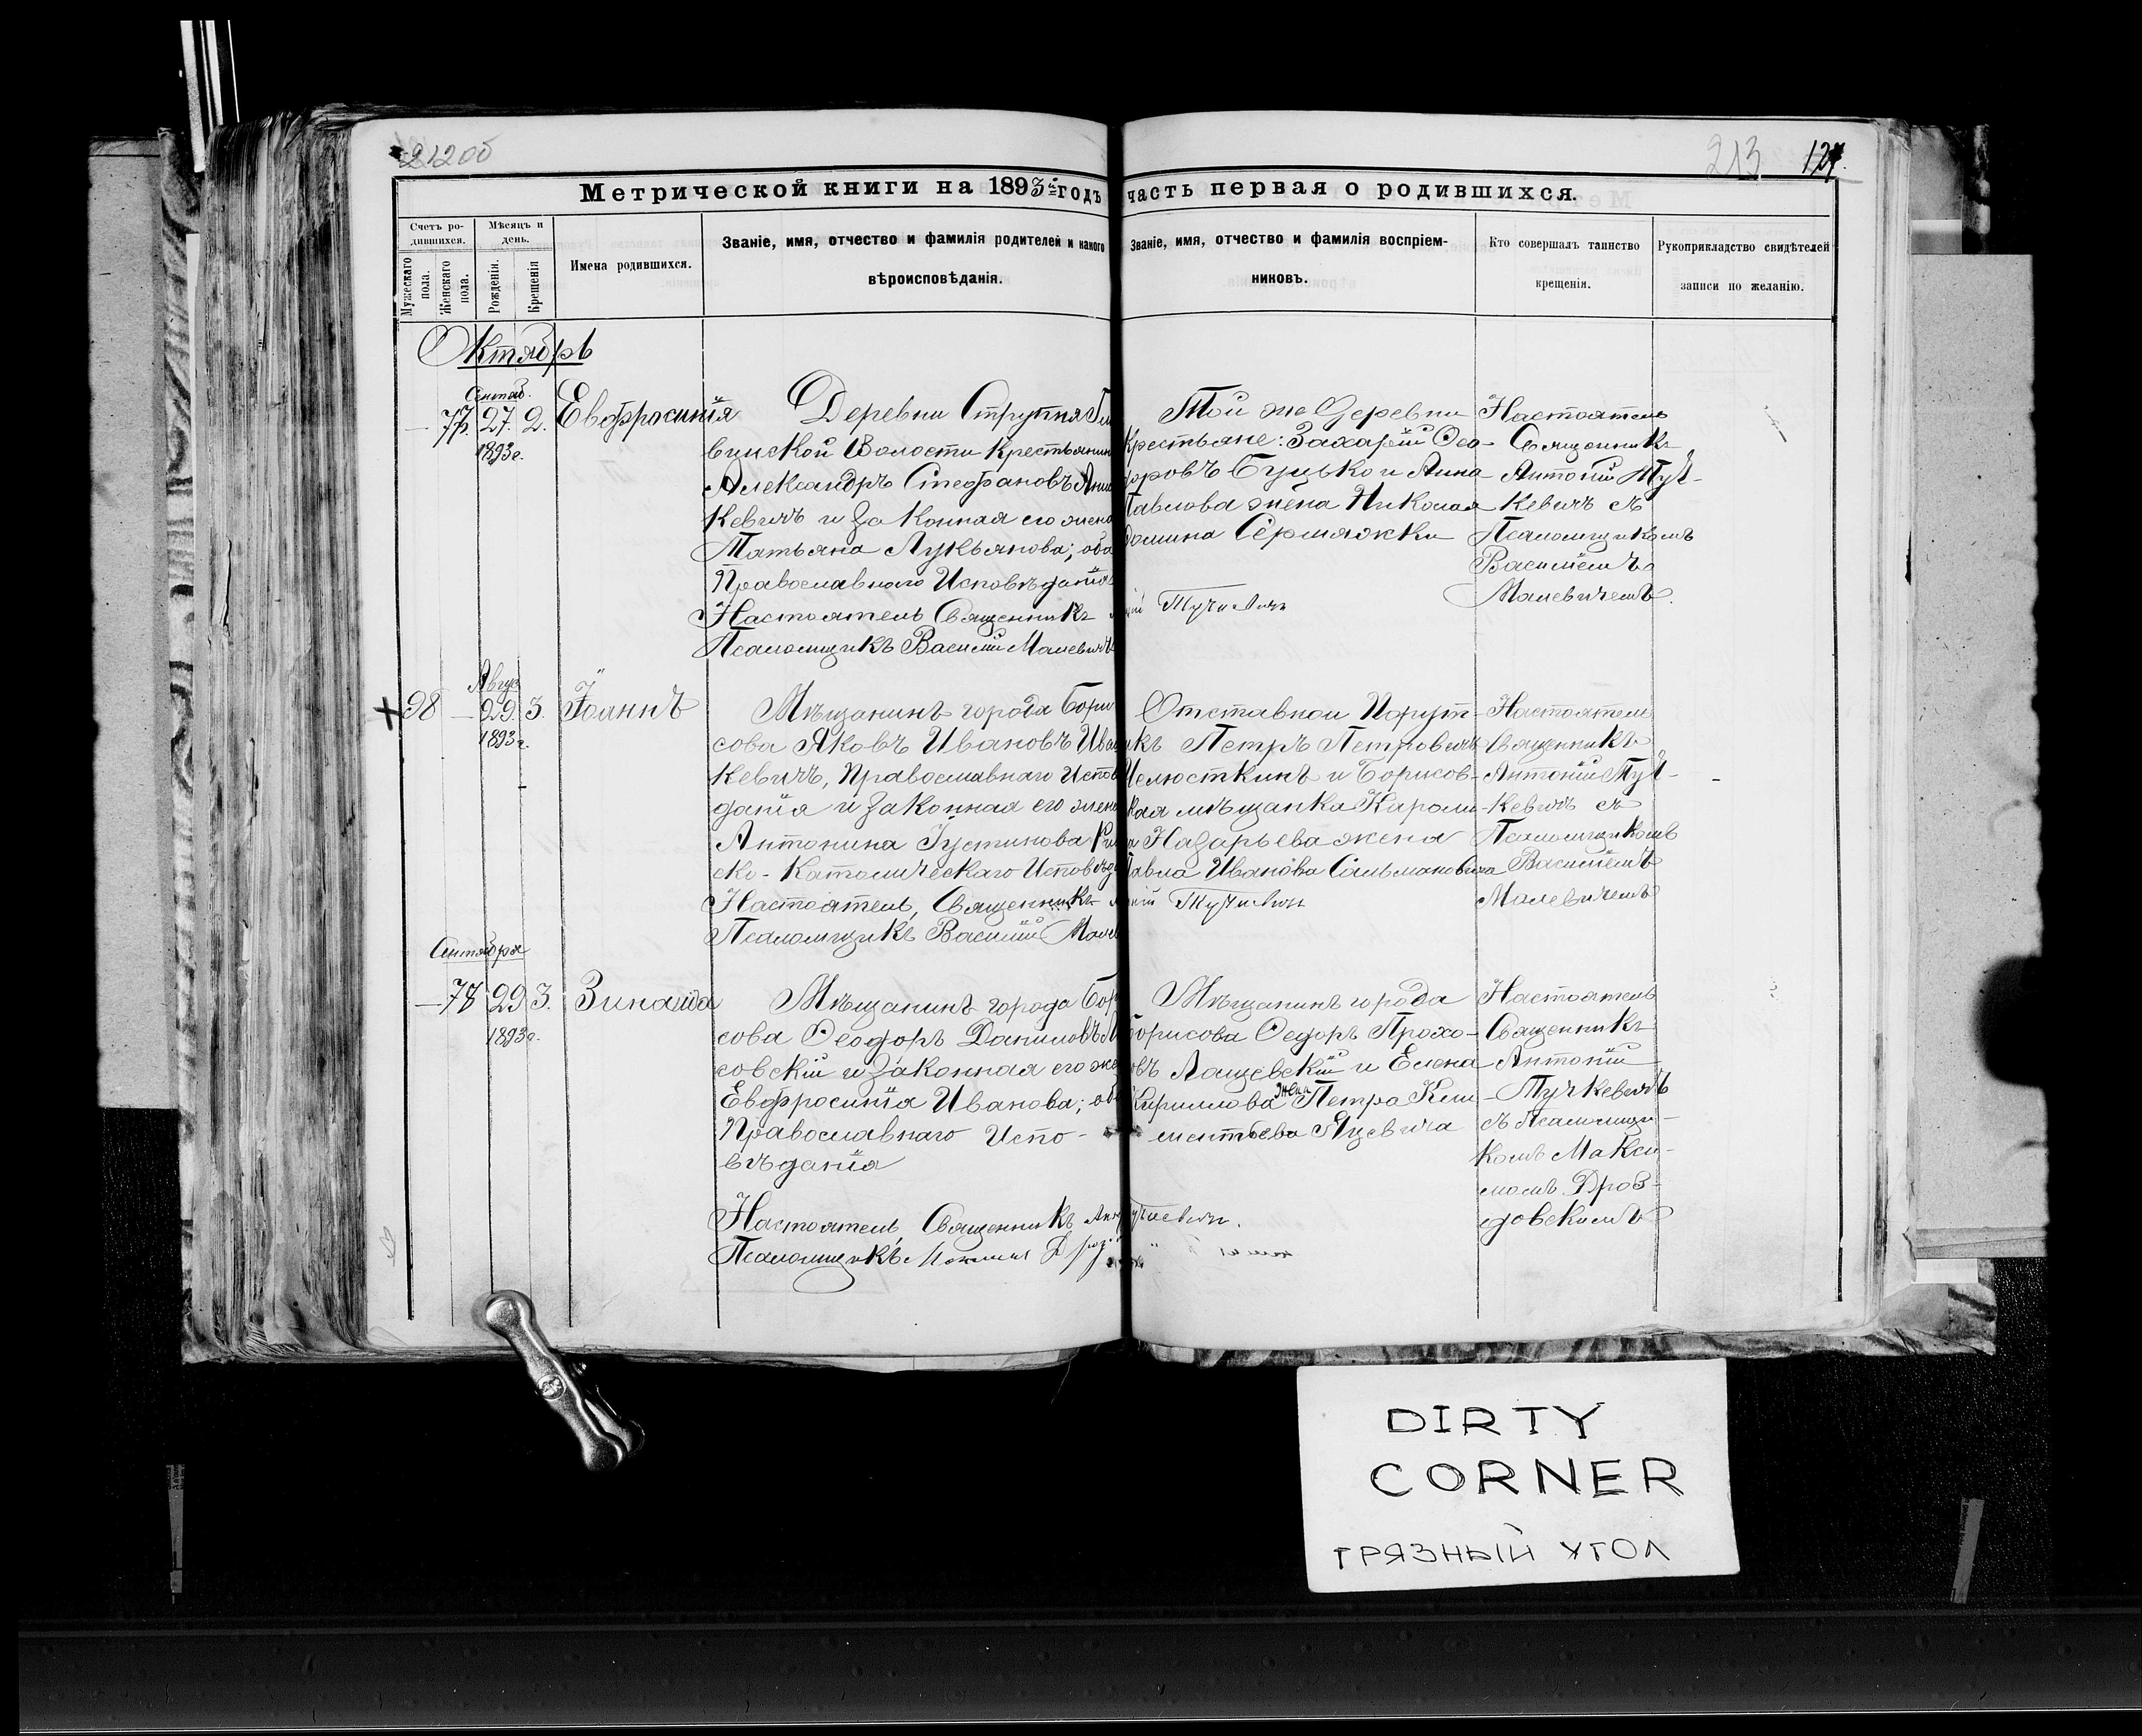 212 об
213 127.
Метрической книги на 1893 годъ часть первая о родившихся.
Счетъ родившихся.
Мѣсяцъ и день.
Мужескаго пола.
Женскаго пола.
Рожденія.
Крещенія
Имена родившихся.
Званіе, имя, отчество и фамилія родителей и какого
вѣроисповѣданія.
Званіе, имя, отчество и фамилія воспріем-
никовъ.
Кто совершалъ таинство
крещенія.
Рукоприкладство свидѣтелей
записи по желанію.
Октябрь
Сентяб.
— 77. 27. 2. Евфросинія
1893 г.
Деревни Струпня
Волости Крестьянин
Александръ Стефановъ
кевичъ и законная его жена
Татьяна Лукьянова; оба
Православнаго Исповѣданія
Настоятель Священникъ
Псаломщикъ Василій Малевичъ
Той же Деревни
Крестьяне: Захарій Ѳео-
доровъ Буцько и Анна
Павлова жена Николая
Сермяжки
Тучкевичъ
Настоятель
Священникъ
Антоній Туч-
кевичъ съ
Псаломщикомъ
Василіемъ
Малевичемъ.
Авгус
98 — 29. 3. Іоаннъ
1893 г.
Мѣщанинъ города Бори
сова Яковъ Ивановъ Ива
кевичъ, Православнаго Испов
данія и законная его жена
Антонина Іустинова Ри
ско-Католическаго Исповѣд
Настоятель, Священникъ
Псаломщикъ Василій Мале
Отставной Порут-
икъ Петръ Петровичъ
Челюсткинъ и Борисов-
кая мѣщанка Кароли-
на Назарьева жена
Павла Иванова Сальмановича
Тучкевичъ
Настоятель
Священникъ
Антоній Туч-
кевичъ съ
Псаломщикомъ
Василіемъ
Малевичемъ
Сентября
— 78 29 3. Зинаида
1893 г.
Мѣщанинъ города Бор
сова Ѳеодоръ Даниловъ
совскій и законная его же
Евфросинія Иванова; об
Православнаго Испо-
вѣданія
Настоятель, Священникъ Ант
Псаломщикъ Максимъ Дроз
Мѣщанинъ города
Борисова Ѳедоръ Прохо-
овъ Лащевскій и Елена
Кириллова жена Петра Кли-
ментьева Яцевича
Тучкевичъ.
Настоятель
Священникъ
Антоній
Тучкевичъ
съ Псаломщи-
комъ Макси-
момъ Дроз-
довскимъ
DIRTY
CORNER
ГРЯЗНЫЙ УГОЛ